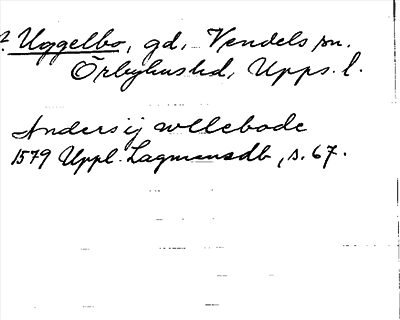 ? Uggelbo, gd, Vendels sn.
Örbyhus hd, Upps. l.
Anders ij wllebode
1579 Uppl. Lagmansdb, s. 67.